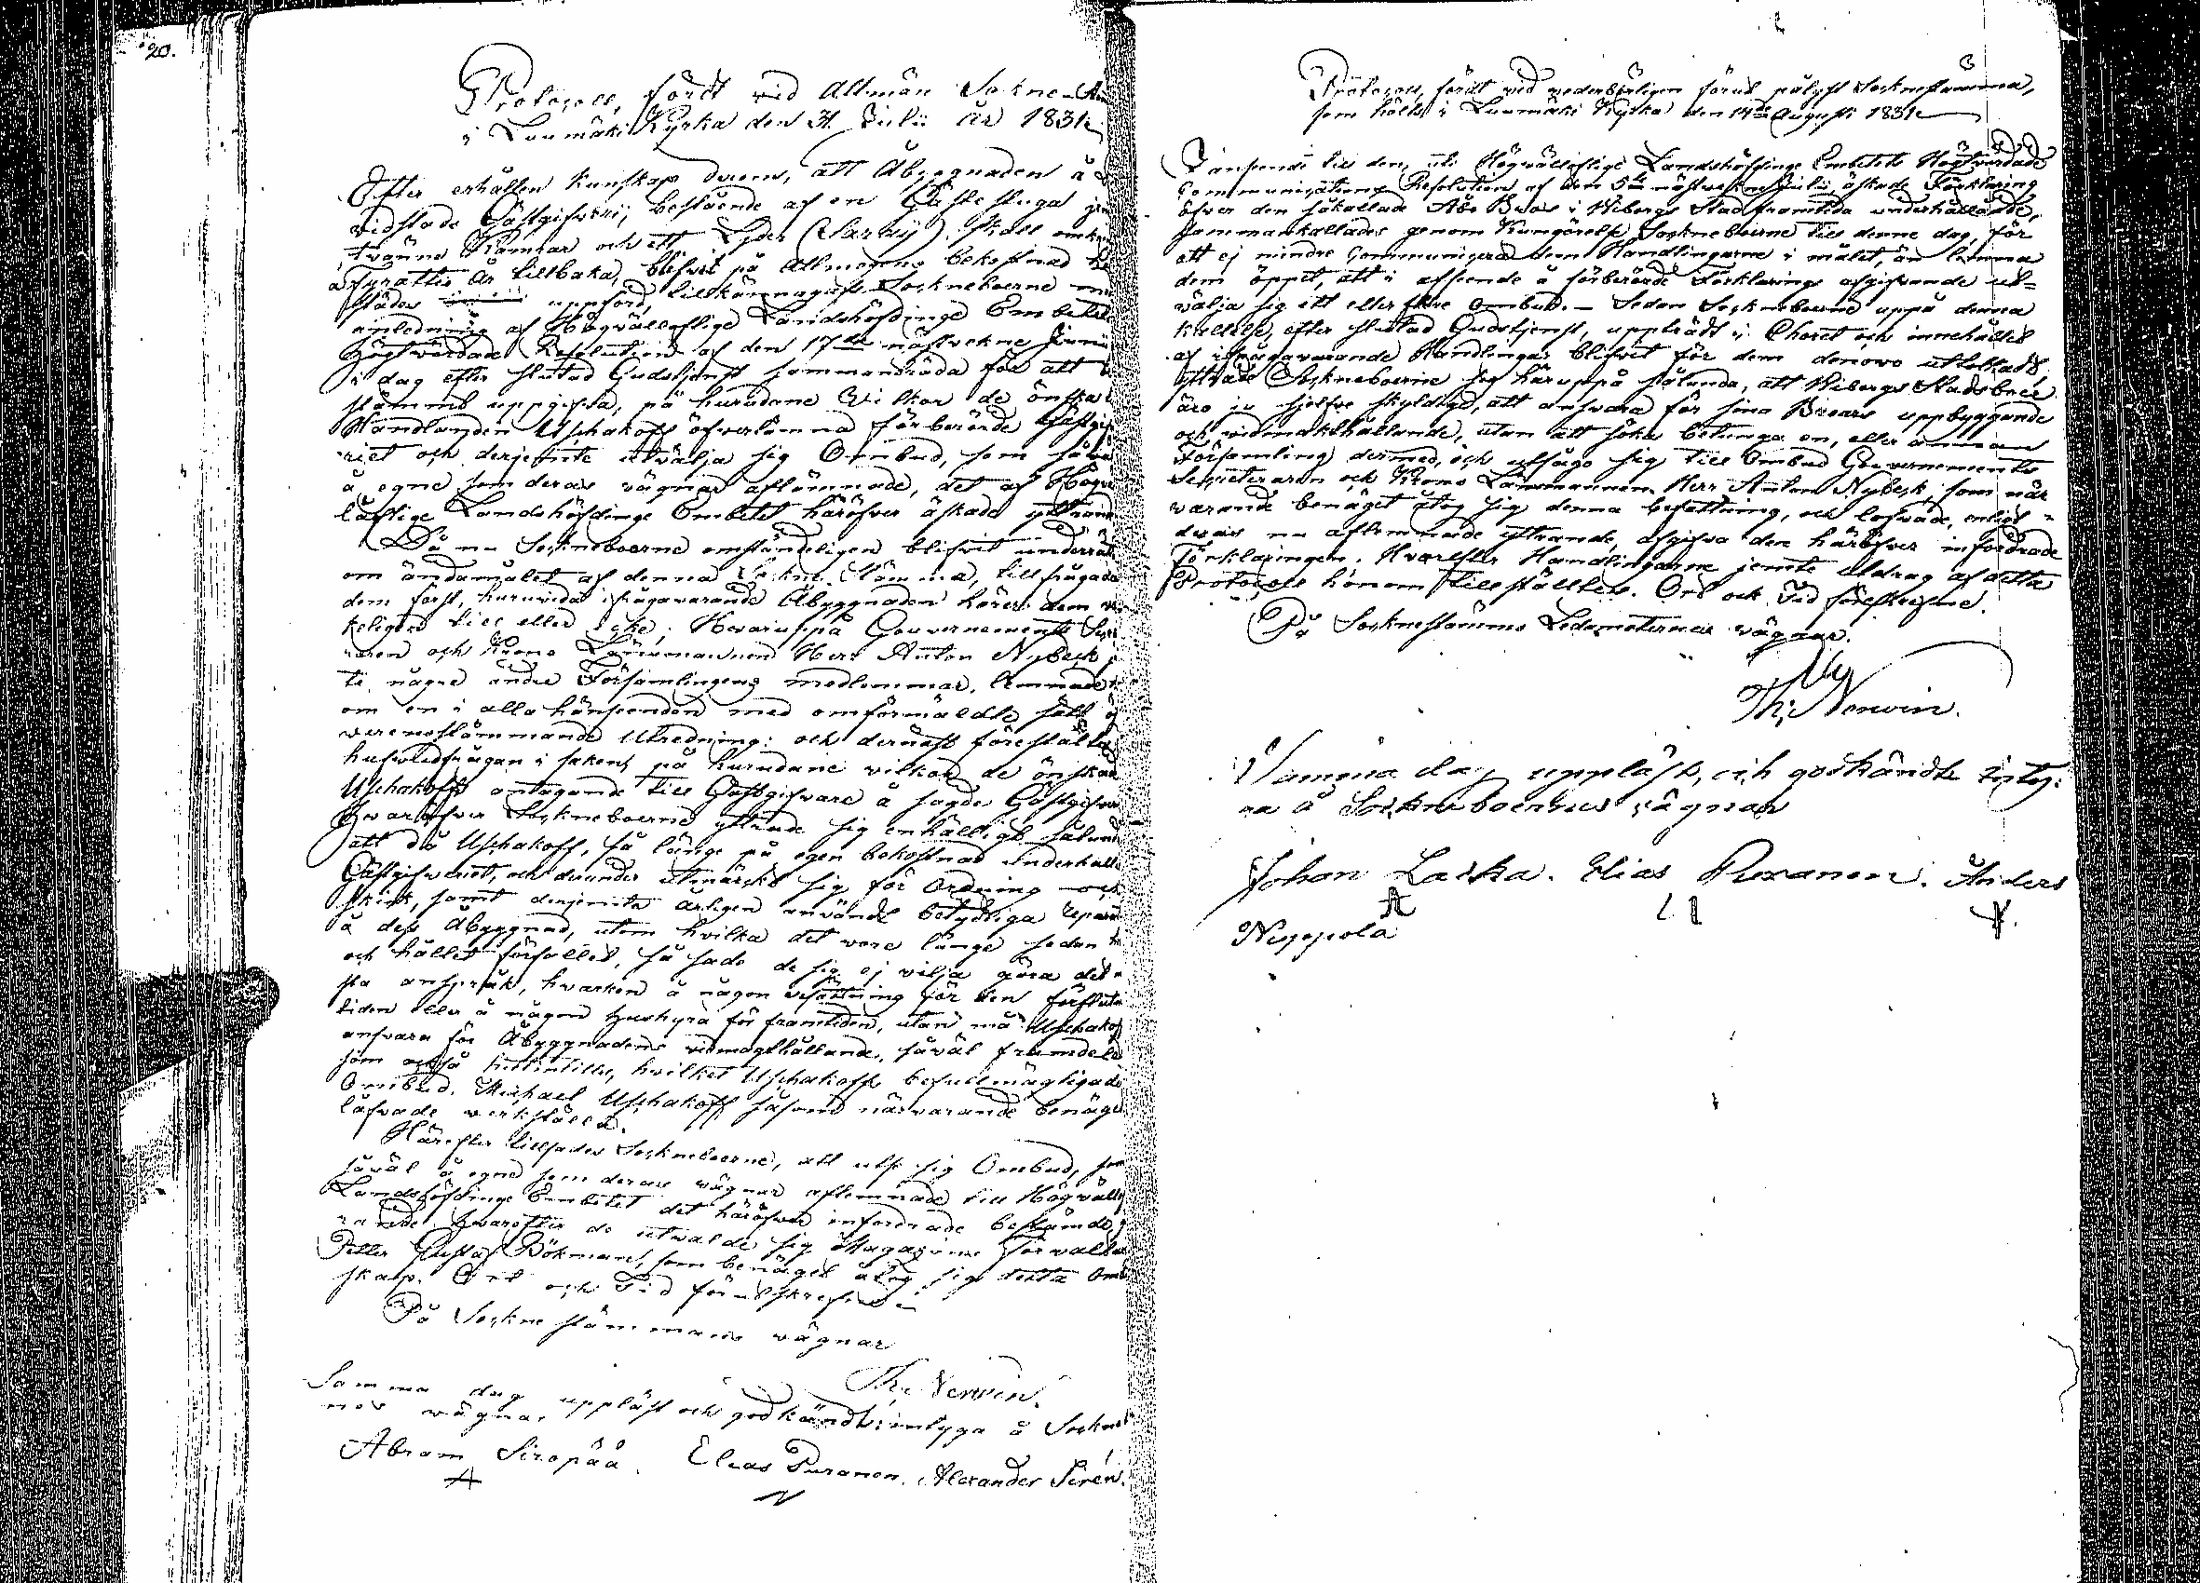 20.
Protocoll, fördt vid Allmän Sockne-
i Luumäki Kyrka den 31 Julii år 1831.
Efter erhållen kunskap derom, att Åbyggnaden å
vidstade Gästgifveri, bestående af en Gästestuga
tvänne Kamrar och ett Lider (Sarvij) skall
fyrattio år tillbaka, blifvit på Allmogens bekostnad
uppförd, tillkännagafs Sockneboerne
anledning af Högvällofliga Landshöfdinge Embetets
Högtvördade Resolution af den 17de nästvekne Junii
i dag efter slutad Gudstjenst sammanträda för att
stämma uppgifva, på hurudane Wilkor de önska
Handlanden Uschakoff öfverlämna förberörde
riet och derjemte utvälja sig Ombud, som
å egne som deras vägnar aflämnade, det af
läflige Landshöfdinge Embetet häröfver äskade
Då nu Sockneboerne omständeligen blifvit
om ändamålet af denna Sockne Stämma, tillfrågades
dem först, huruvida ifrågavarande Åbyggnaden hörer dem
keligen till eller icke; Hvaruppå Gouvernements
raren och Krono Länsmannen Herr Anton Nybeck
te någre andre Församlingens medlemmar, lemnade
om en i alla hänseenden med omförmäldte sätt
verensstämmande Utredning: och dernäst förestältes
hufvudfrågan i saken, på hurudane vilkor de önskade
Uschakoffs antagande till Gästgifvare å sagde
Hvaröfver Sockneboerne yttrade sig enhälligt
att då Uschakoff, så länge på egen bekostnad underhållit
Gästgifveriet, och derunder utmärkt sig för Ordning och
skick, samt derjemte årligen användt betydliga
å dess Åbyggnad, utom hvilka det vore länge sedan
och hållet förfallet, så sade de sig ej vilja göra det
sta anspråk, hvarken å någon ersättning för den förflutne
tiden eller å någon hushyra för framtiden, utan må Uschakoff
ansvara för Åbyggnadens vidmagthållande, såväl framdeles
som också hitintills, hvilket Uschakoffs befullmägtigade
Ombud, Michael Uschakoff såsom närvarande benäget
läfvade verkställa.
Härefter tillsades Sockneboerne, att utse sig Ombud, som
såväl å egne som deras vägnar aflemnade till
Landshöfdinge Embetet det häröfver infordrade
Hvarefter de utvalde sig Magazins
Petter Gustaf Bökman, som benäget åtog sig detta
skap. Ort och Tid förutskrefne
På Sockne stämmans vägnar
Th: Nerwin.
Samma dag uppläst och godkändt; intyga å
nes vägnar,
Abram Siropää. Elias Puranen. Alexander Sirén.
Protocoll, fördt vid vederbörligen förut pålyst Sockne stämma,
som hölts i Luumäki Kyrka den 14de Augusti 1831.
I anseende till den, uti Högvällofliga Landshöfdinge Embetets Högtvördade
Communications Resolution af den 5te nästvekne Julii äskade Förklaring
öfver den såkallade Åbo Bron i Wiborgs Stad framtida underhållande,
sammankallades genom Kungörelse Sockneboerne till denne dag, för
att ej mindre Communiceras dem Handlingarne i målet, än lemna
dem öppet, att i afseende å förberörde Förklarings afgifvande ut-
välja sig ett eller flere Ombud. — Sedan Sockneboerne uppå denna
kallelse, efter slutad Gudstjenst, uppträdt i Choret och innehållet
af ifrågavarande Handlingar blifvit för dem denovo uttolkadt,
yttrade Sockneboerne sig häruppå sålunda, att Wiborgs Stadsboer
äro ju sjelfve skyldige, att ansvara för sina Broars uppbyggande
och vidmakthållande, utan att söka betunga en, eller annan
Församling dermed, och utsågo sig till Ombud Gouvernements
Secreteraren och Krono Länsmannen Herr Anton Nybeck, som när
varande benäget åtog sig denna befattning, och lofvade, enligt
deras nu aflemnade yttrande, afgifva den häröfver infordrade
Förklaringen. Hvarefter Handlingarne jemte utdrag af detta
Protocoll honom tillställtes. Ort och Tid förutskrefne.
På Sockne stämmo Ledamöternes vägnar.
Th: Nerwin.
Samma dag uppläst, och godkändt intyg:
ra å Sockneboernes vägnar
Johan Laska. Elias Puranen. Anders
Nuppola